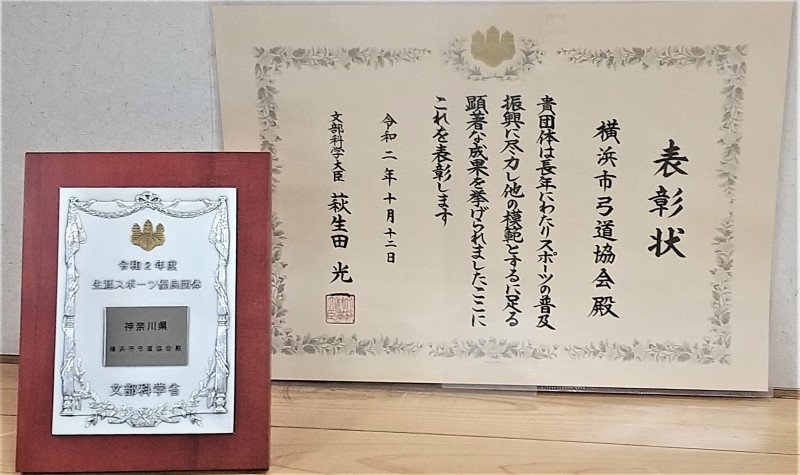 表彰状
横浜市弓道協会殿
貴団体は長年にわたりスポーツの普及
振興に尽力し他の模範とするに足る
顕著な成果を挙げられましたここに
これを表彰します
令和二年十月十二日
文部科学大臣 萩生田光一
令和2年度
生涯スポーツ優良団体
神奈川県
横浜市弓道協会殿
文部科学省